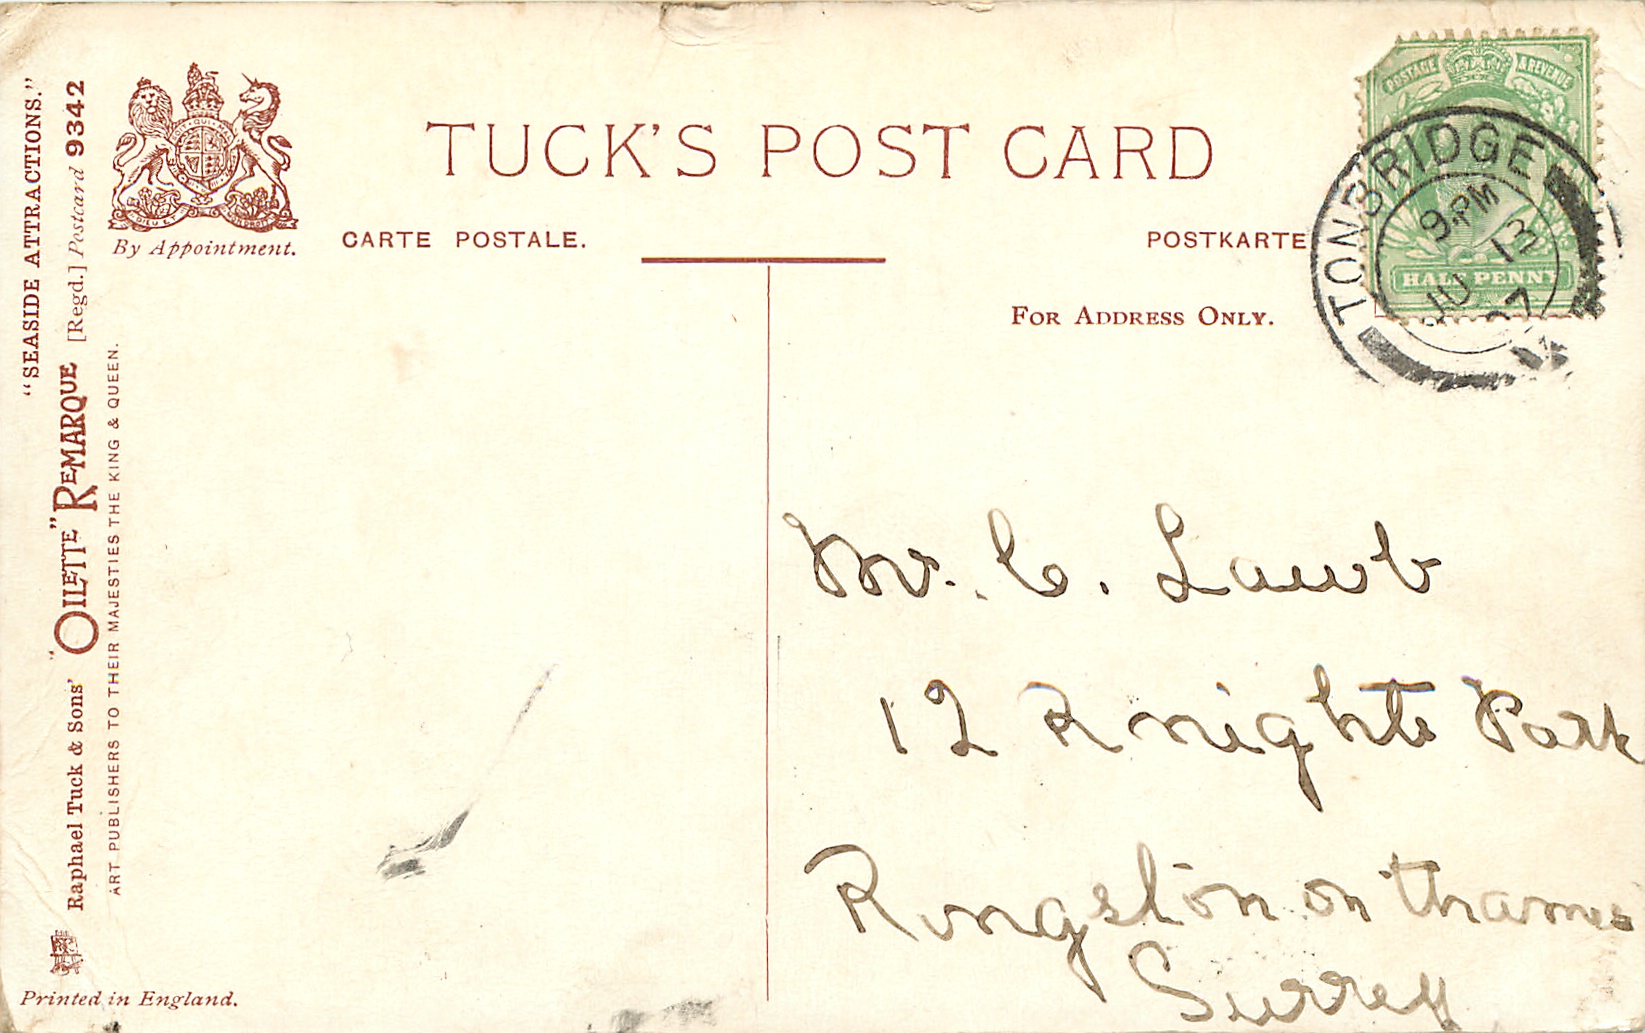 "SEASIDE ATTRACTIONS."
Raphael Tuck & Sons' "OILETTE" REMARQUE [Regd.] Postcard 9342
ART PUBLISHERS TO THEIR MAJESTIES THE KING & QUEEN.
By Appointment.
Printed in England.
TUCK'S POST CARD
CARTE POSTALE.
POSTKARTE
FOR ADDRESS ONLY.
POSTAGE & REVENUE
HALF PENNY
TONBRIDGE
9.PM
JU 13
07
Mr. C. Lamb
12 Knights Park
Kingston on Thames
Surrey